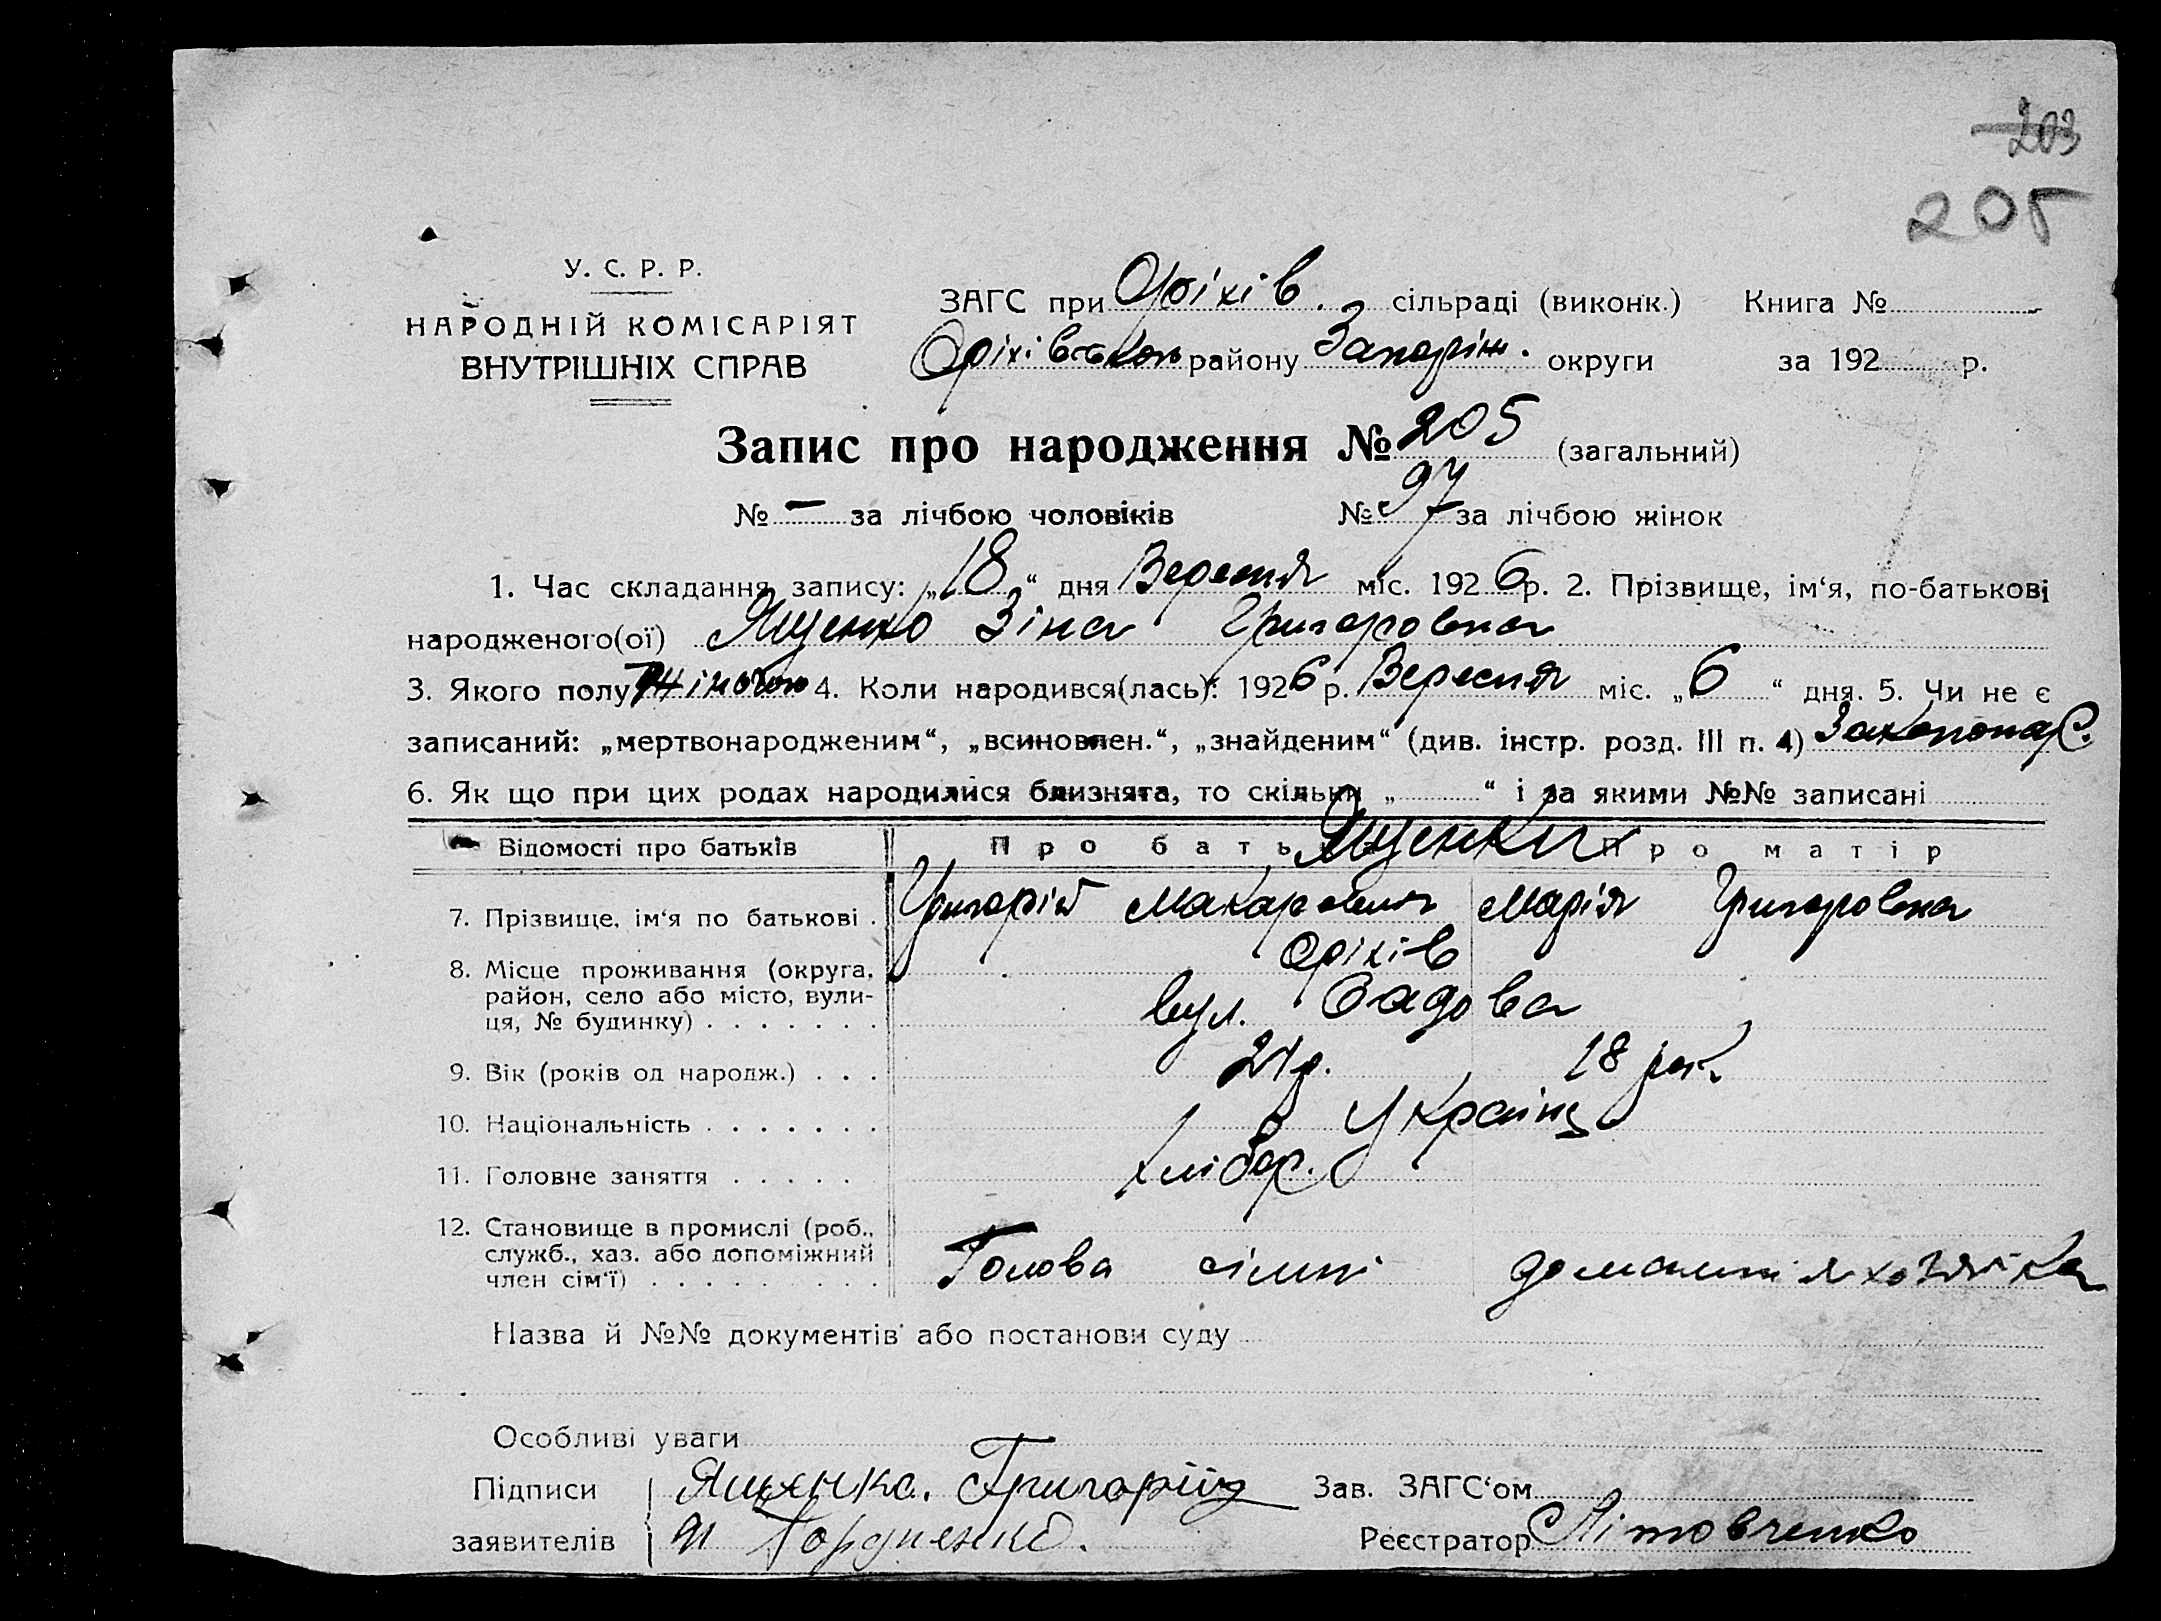 203
205
У. С. Р. Р.
НАРОДНІЙ КОМІСАРІЯТ
ВНУТРІШНІХ СПРАВ
ЗАГС при Оріхів. сільраді (виконк.) Книга №
Оріхівськом району Запоріж. округи за 192 р.
Запис про народження № 205 (загальний)
№ – за лічбою чоловіків № 97 за лічбою жінок
1. Час складання запису: „18“ дня Вересня міс. 1926 р. 2. Прізвище, ім‘я, по-батькові
народженого(ої) Ященко Зіна Григоровна
3. Якого полу жіночою 4. Коли народився(лась): 1926 р. Вересня міс. „6“ дня. 5. Чи не є
записаний: „мертвонародженим“, „всиновлен.“, „знайденим“ (див. інстр. розд. III п. 4)
6. Як що при цих родах народилися близнята, то скільки „ “ і за якими №№ записані
Відомості про батьків Про батьк Ященки Про матір
7. Прізвище, ім‘я по батькові . Григорій Макарович Марія Григоровна
8. Місце проживання (округа, Оріхів
район, село або місто, вули-
ця, № будинку) . . . . . . . вул. Садова
9. Вік (років од народж.) . . . 21 р. 18 рок.
10. Національність . . . . . . . Україн
11. Головне заняття . . . . . хлібор.
12. Становище в промислі (роб.,
служб., хаз. або допоміжний
член сім‘ї) . . . . . . . . . Голова сімні домашня хозяйка
Назва й №№ документів або постанови суду
Особливі уваги
Підписи Ященко. Григорій Зав. ЗАГС‘ом
заявителів Гордиенко. Реєстратор Літовченко